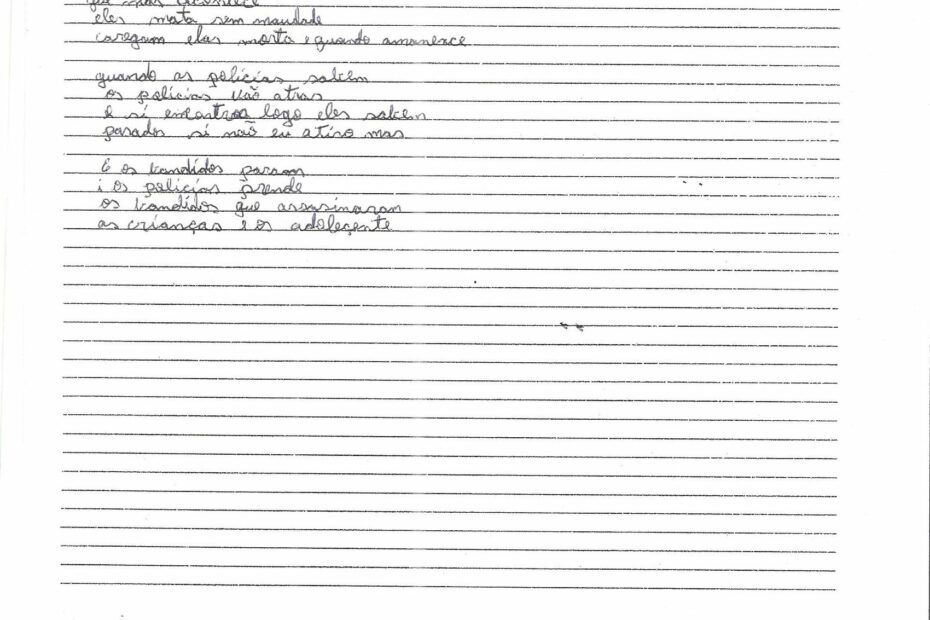 que mas acontece
eles mata sem maudade
caregam elas morta e quando amanhece
quando as policias sabem
os policias vão atras
E si encontroa logo eles sabem
parados si não eu atiro mas
E os bandidos param
i os policias prende
os bandidos que assasinaram
as crianças e os adoleçente